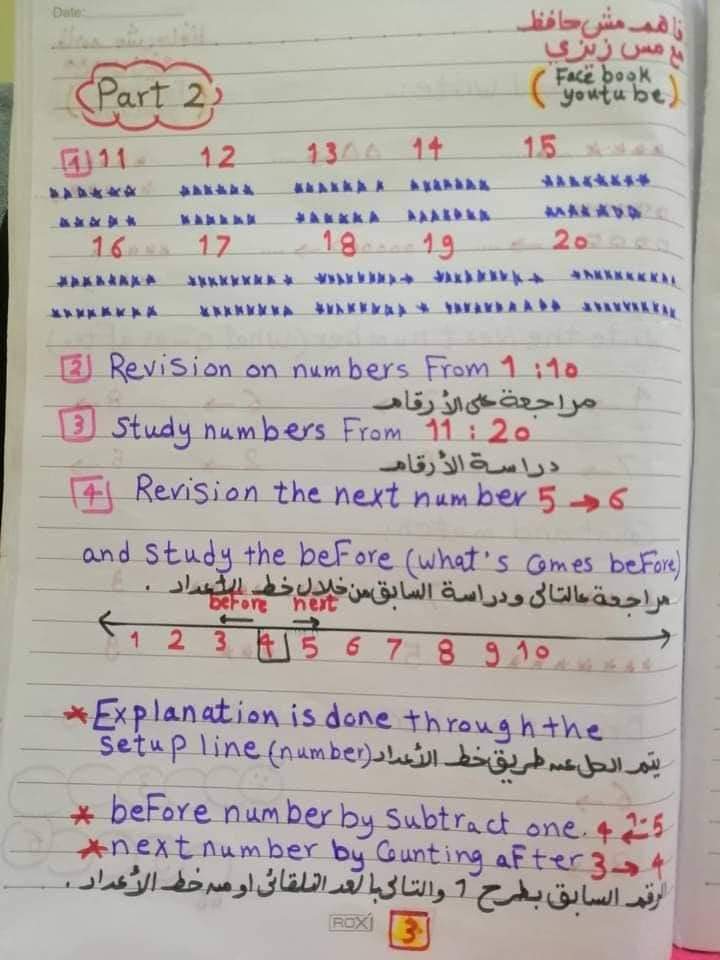 Date:
فاهم مش حافظ
مع مس زيزي
Part 2
(Face book
youtube)
1 11 12 13 14 15
16 17 18 19 20
2 Revision on numbers From 1 : 10
مراجعة على الأرقام
3 Study numbers From 11 : 20
دراسة الأرقام
4 Revision the next number 5 → 6
and study the before (what's comes before)
مراجعة عالتالى ودراسة السابق من خلال خط الأعداد .
before next
1 2 3 4 5 6 7 8 9 10
* Explanation is done through the
setup line (number) يتم الحل عن طريق خط الأعداد
* before number by subtract one. 4 5
* next number by Counting after 3 → 4
الرقم السابق بطرح 1 والتالى بالعد التلقائى او من خط الأعداد .
ROXI
3